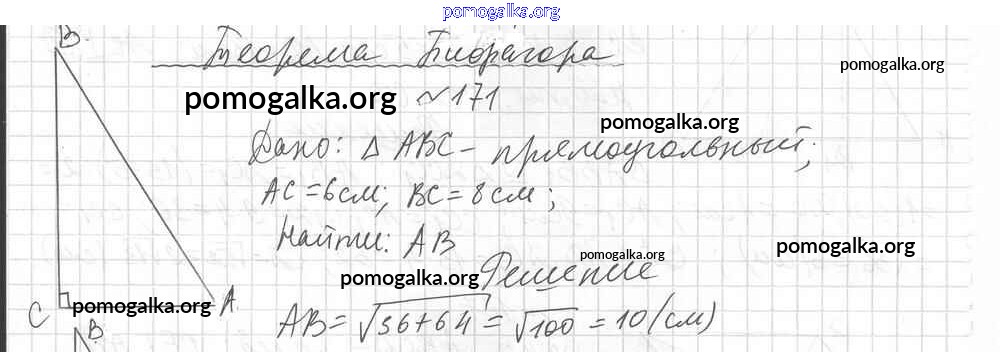 pomogalka.org
B
Теорема Пифагора
pomogalka.org
pomogalka.org №171
pomogalka.org
Дано: △ ABC – прямоугольный;
AC = 6 см; BC = 8 см;
Найти: AB
pomogalka.org
pomogalka.org
pomogalka.org Решение
C pomogalka.org A
AB = √36+64 = √100 = 10 (см)
B